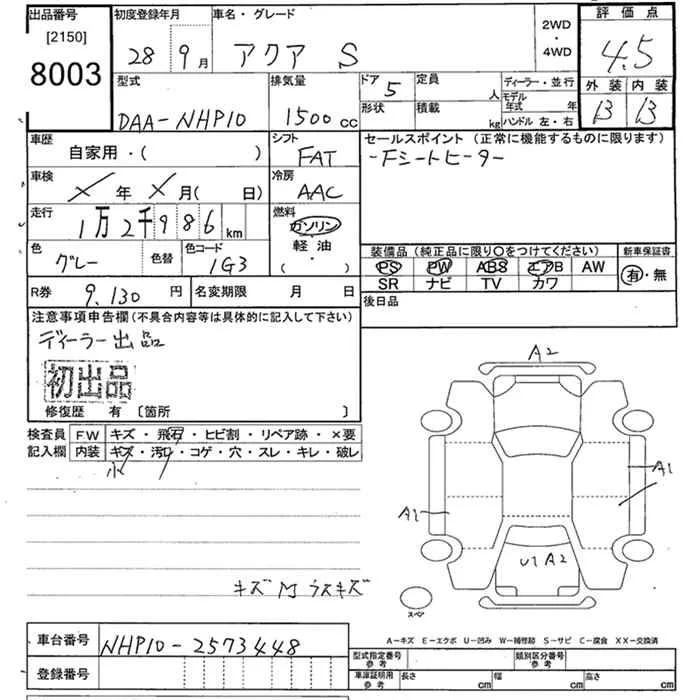 出品番号 初度登録年月 車名・グレード 2WD・4WD 評価点
[2150]
8003 28 9月 アクア S 4.5
型式 排気量 ドア 5 定員 人 ディーラー・並行 外装 内装
DAA-NHP10 1500cc 形状 積載 kg モデル年式 年 B B
ハンドル 左・右
車歴 シフト セールスポイント (正常に機能するものに限ります)
自家用・( ) FAT -Fシートヒーター
車検 冷房
×年×月( 日) AAC
走行 燃料
1万2千986km ガソリン
軽油
( ・ )
色 色替 色コード 装備品 (純正品に限り〇をつけてください) 新車保証書
グレー 1G3 PS PW ABS エアB AW 有・無
SR ナビ TV カワ
R券 9,130円 名変期限 月 日 後日品
注意事項申告欄(不具合内容等は具体的に記入して下さい)
ディーラー出品
初出品
修復歴 有 〔箇所 〕
検査員 FW キズ・飛石・ヒビ割・リペア跡・×要
記入欄 内装 キズ・汚レ・コゲ・穴・スレ・キレ・破レ
小
A2
A1
A1
U1 A2
キズ M ラスキズ
スペア
A-キズ E-エクボ U-凹み W-補修跡 S-サビ C-腐食 XX-交換済
車台番号 NHP10-2573448
登録番号
型式指定番号 参考 類別区分番号 参考
車庫証明用 参考 長さ cm 幅 cm 高さ cm